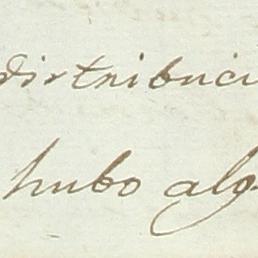 distribuci
hubo alg